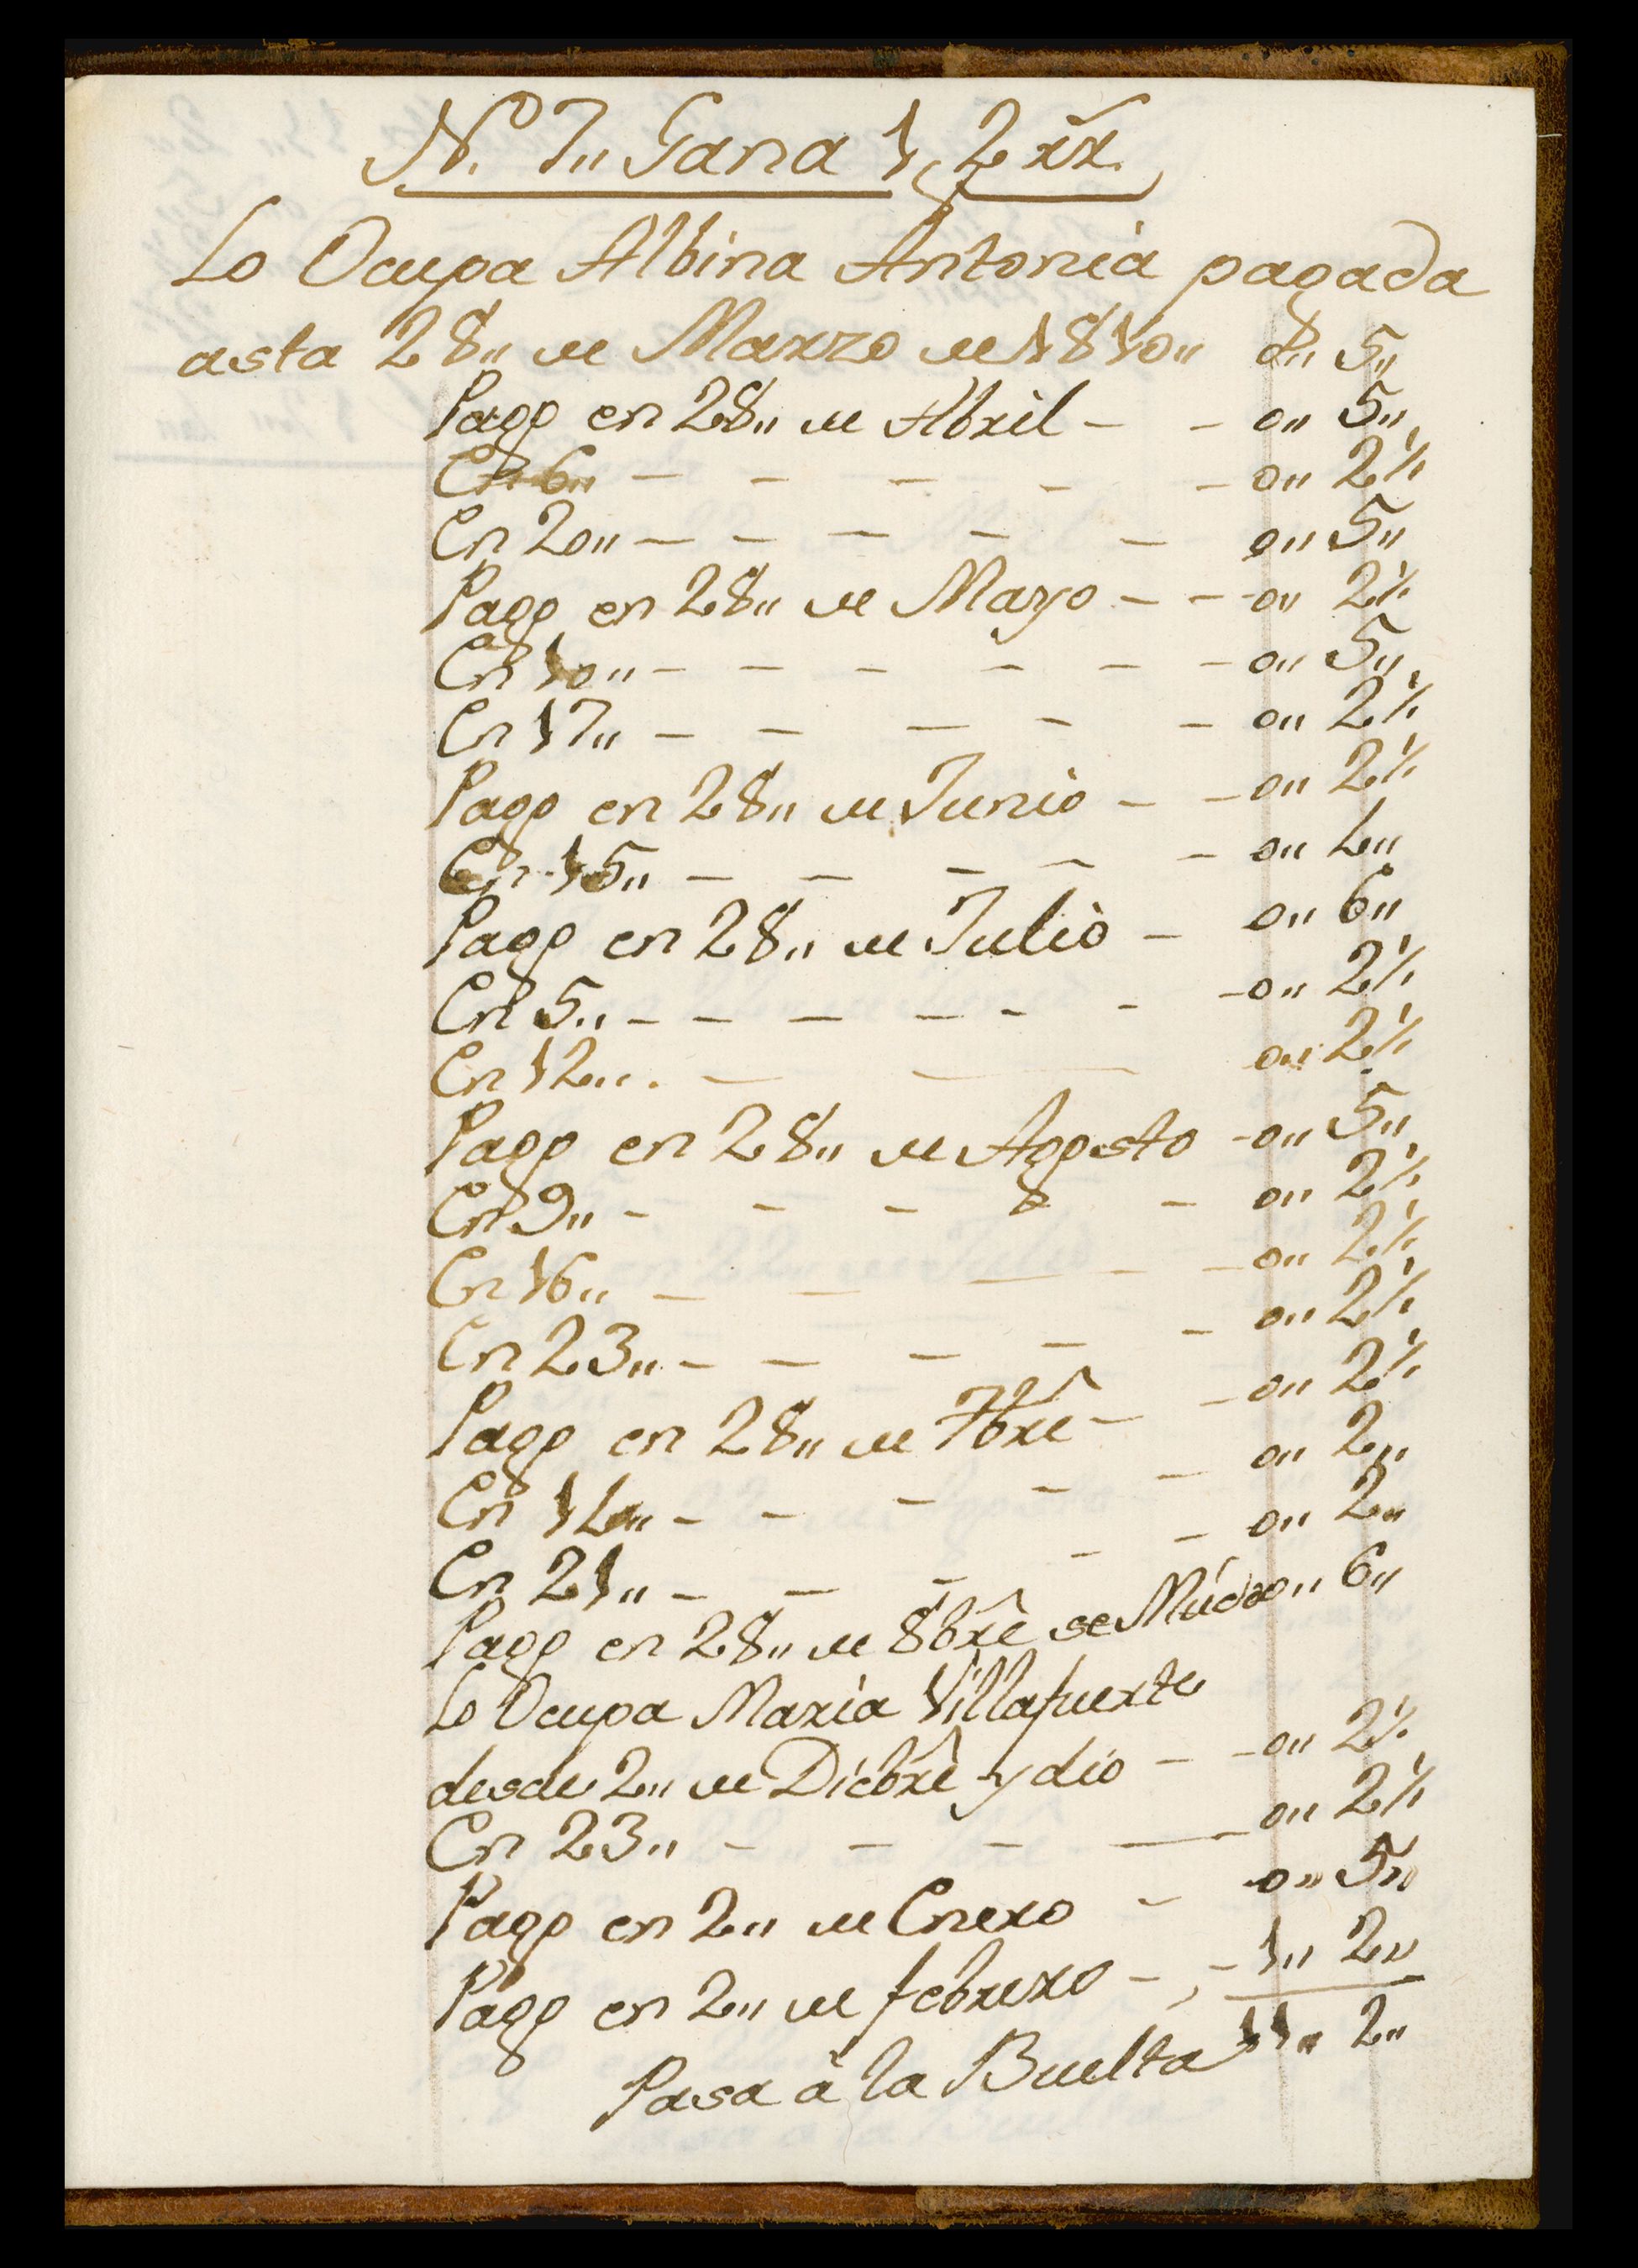 N.º 7,, Gana 1, 2 rr.
Lo Ocupa Albina Antonia pagada
asta 28,, de Marzo de 1810,, 0,, 5,,
Pago en 28,, de Abril - - 0,, 5,,
En 6,, - - - - - 0,, 2½
En 20,, - - - - - 0,, 5,,
Pago en 28,, de Mayo - - 0,, 2½
En 10,, - - - - - - 0,, 5,,
En 17,, - - - - - 0,, 2½
Pago en 28,, de Junio - - 0,, 2½
En 15,, - - - - - 0,, 4,,
Pago en 28,, de Julio - 0,, 6,,
En 5,, - - - - - - - 0,, 2½
En 12,,. - - 0,, 2½
Pago en 28,, de Agosto - 0,, 5,,
En 9,, - - - - 0,, 2½
En 16,, - - - - - 0,, 2½
En 23,, - - - - - 0,, 2½
Pago en 28,, de 7bre - - 0,, 2½
En 14,, - - - - - 0,, 2,,
En 21,, - - - - - 0,, 2,,
Pago en 28,, de 8bre se Múdo 0,, 6,,
Lo Ocupa Maria Villafuerte
desde 2,, de Dicbre y dio - - 0,, 2½
En 23,, - - - - 0,, 2½
Pago en 2,, de Enero - 0,, 5,,
Pago en 2,, de febrero - - 1,, 2,,
Pasa à la Buelta 11,, 2,,